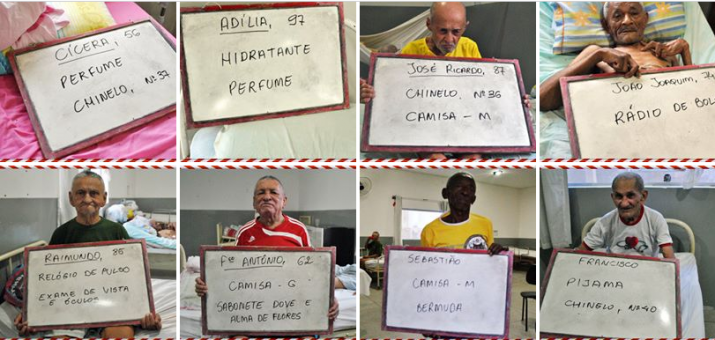 CÍCERA, 56
PERFUME
CHINELO, Nº 37
ADÍLIA, 97
HIDRATANTE
PERFUME
JOSÉ RICARDO, 87
CHINELO, Nº 36
CAMISA - M
JOÃO JOAQUIM, 74
RÁDIO DE BOL
RAIMUNDO, 86
RELÓGIO DE PULSO
EXAME DE VISTA
E ÓCULOS
Fco ANTÔNIO, 62
CAMISA - G
SABONETE DOVE E
ALMA DE FLORES
SEBASTIÃO
CAMISA - M
BERMUDA
FRANCISCO
PIJAMA
CHINELO, Nº 40